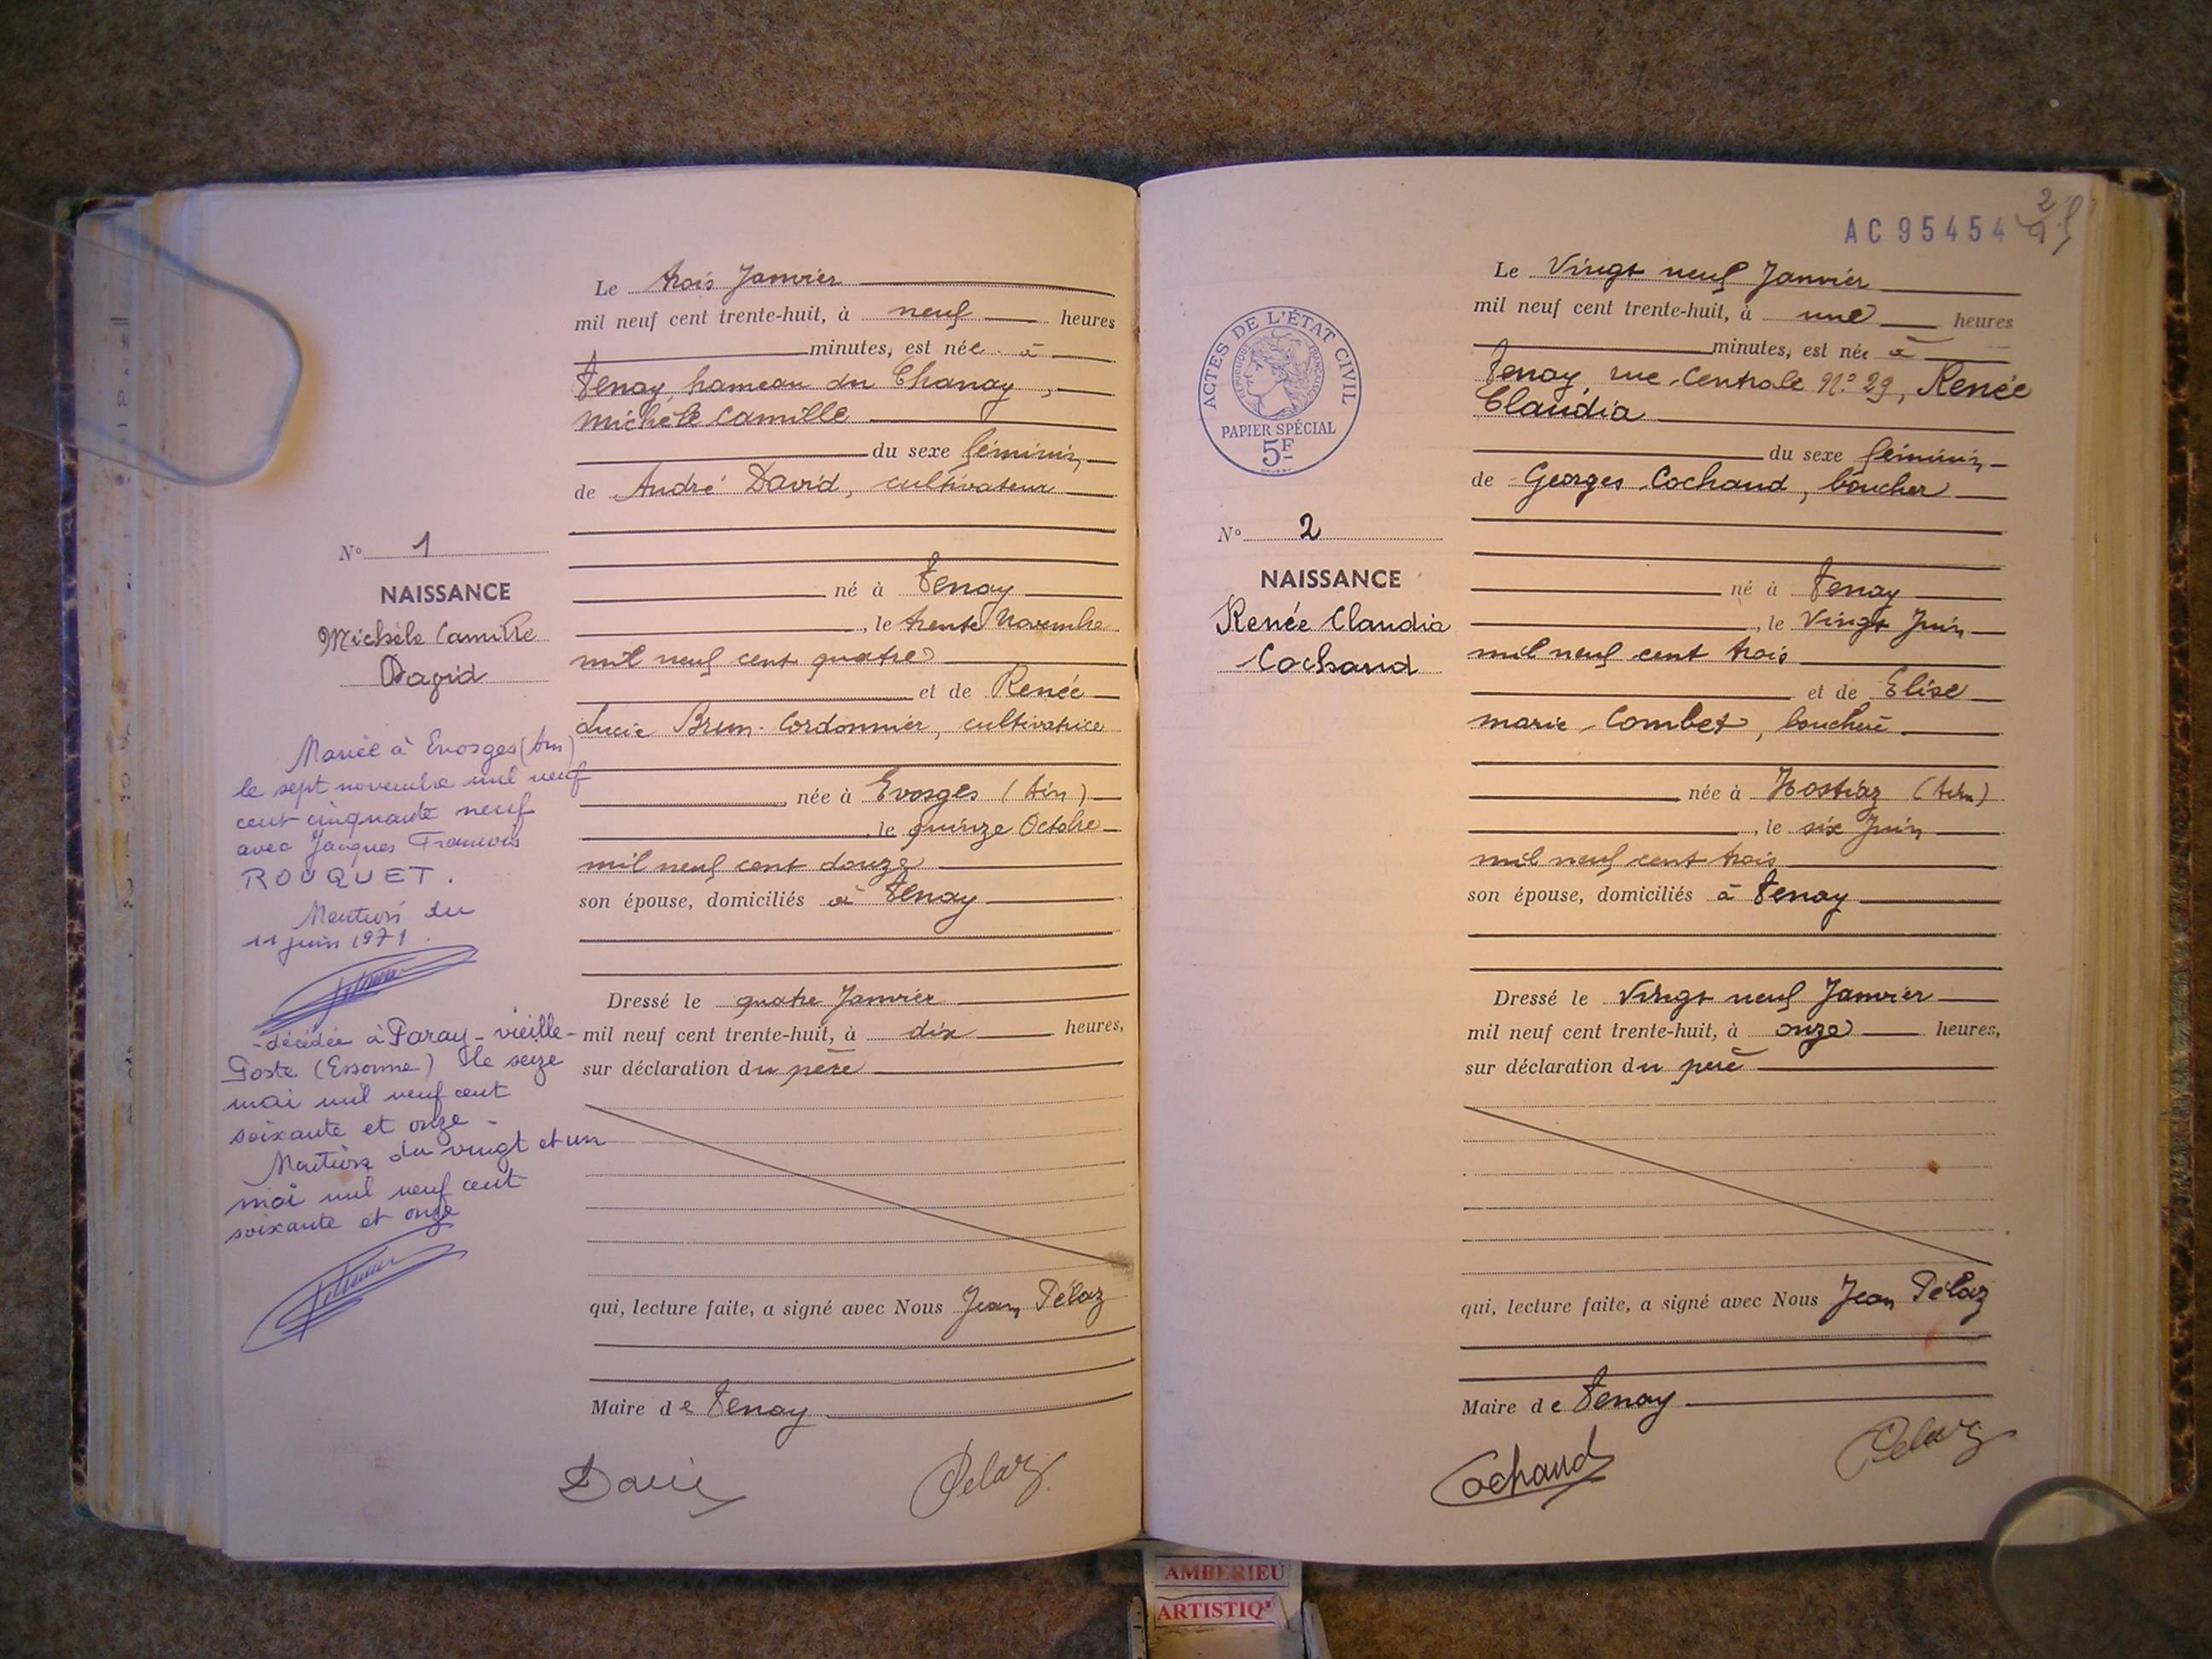 Le trois Janvier
mil neuf cent trente-huit, à neuf heures
minutes, est née à
Tenay, hameau du Chanay,
Michèle Camille
du sexe féminin
de André David, cultivateur
né à Tenay
, le trente Novembre
mil neuf cent quatre
et de Renée
Lucie Brun-Cordonnier, cultivatrice
née à Evosges (Ain)
, le quinze Octobre
mil neuf cent douze
son épouse, domiciliés à Tenay
Dressé le quatre Janvier
mil neuf cent trente-huit, à dix heures,
sur déclaration du père
qui, lecture faite, a signé avec Nous Jean Pélaz
Maire de Tenay
David Pelaz
N° 1
NAISSANCE
Michèle Camille
David
Mariée à Evosges (Ain)
le sept novembre mil neuf
cent cinquante neuf
avec Jacques François
ROUQUET.
Mention du
11 juin 1971.
-décédée à Paray-vieille-
Poste (Essonne) le seize
mai mil neuf cent
soixante et onze -
Mention du vingt et un
mai mil neuf cent
soixante et onze
AC 95454
2
Le Vingt neuf Janvier
mil neuf cent trente-huit, à une heures
minutes, est née à
Tenay, rue Centrale N° 29, Renée
Claudia
du sexe féminin
de Georges Cochand, boucher
né à Tenay
, le Vingt Juin
mil neuf cent trois
et de Elise
Marie Combet, bouchère
née à Hostiaz (Ain)
, le six Juin
mil neuf cent trois
son épouse, domiciliés à Tenay
Dressé le Vingt neuf Janvier
mil neuf cent trente-huit, à onze heures,
sur déclaration du père
qui, lecture faite, a signé avec Nous Jean Pélaz
Maire de Tenay
Cochand Pelaz
ACTES DE L'ÉTAT CIVIL
RÉPUBLIQUE FRANÇAISE
PAPIER SPÉCIAL
5F
N° 2
NAISSANCE
Renée Claudia
Cochand
AMBERIEU
ARTISTIQ